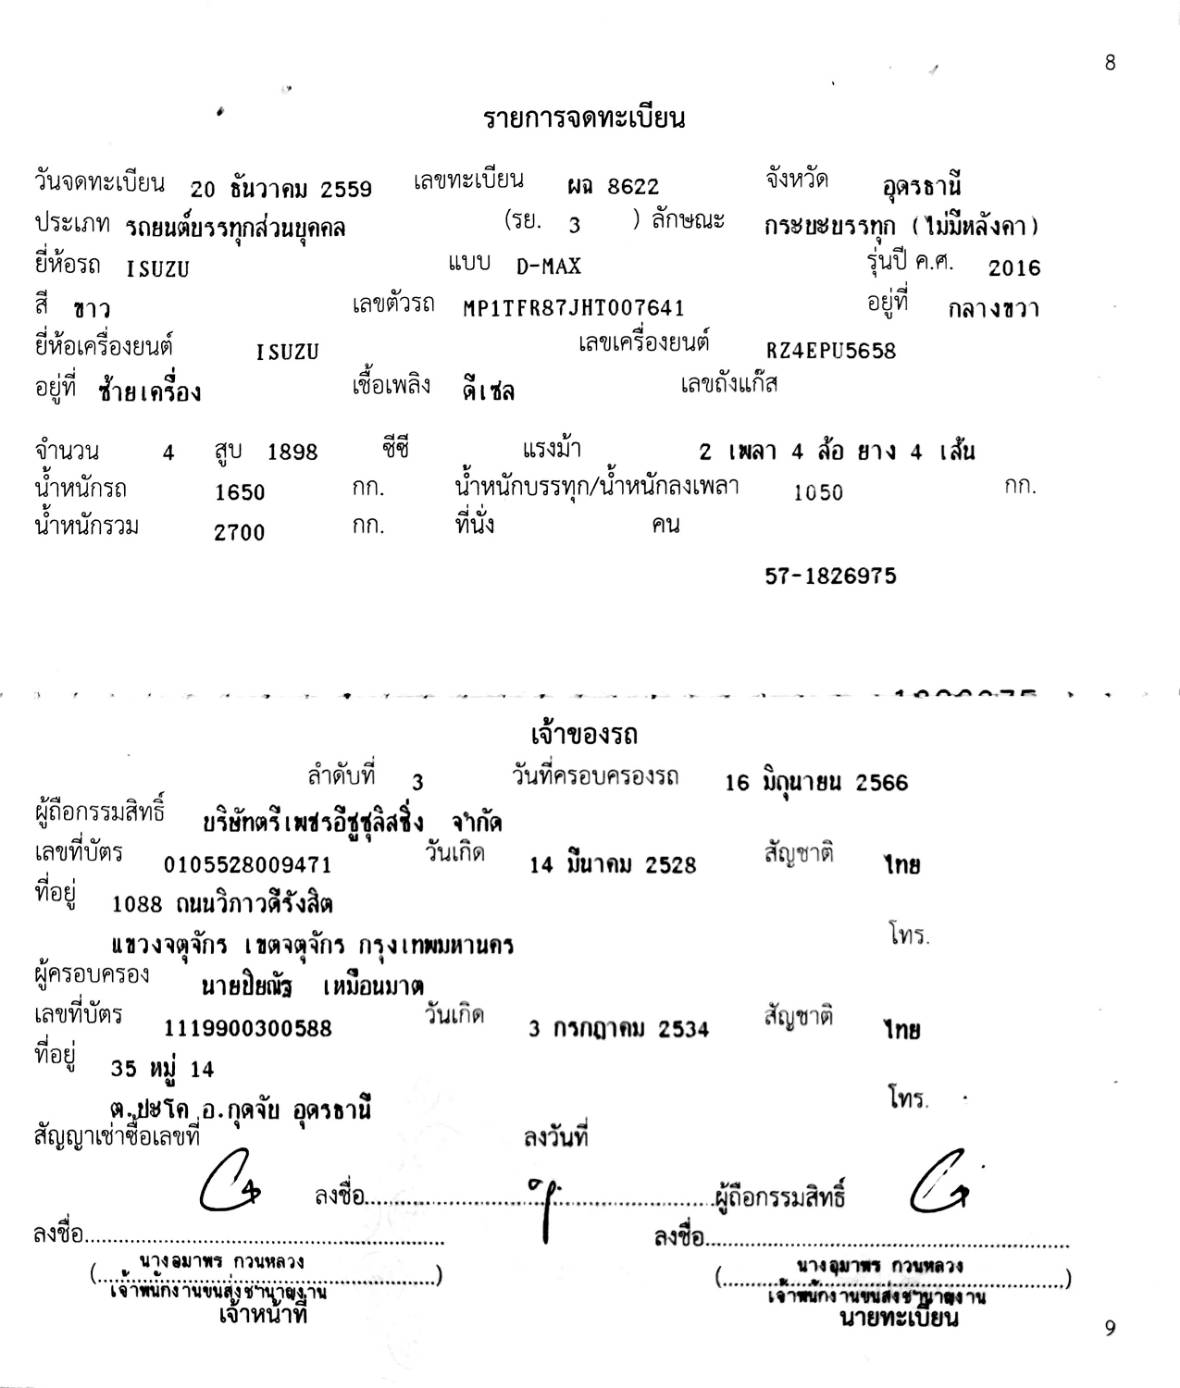 8
รายการจดทะเบียน
วันจดทะเบียน 20 ธันวาคม 2559 เลขทะเบียน ผฉ 8622 จังหวัด อุดรธานี
ประเภท รถยนต์บรรทุกส่วนบุคคล (รย. 3 ) ลักษณะ กระบะบรรทุก (ไม่มีหลังคา)
ยี่ห้อรถ ISUZU แบบ D-MAX รุ่นปี ค.ศ. 2016
สี ขาว เลขตัวรถ MP1TFR87JHT007641 อยู่ที่ กลางขวา
ยี่ห้อเครื่องยนต์ ISUZU เลขเครื่องยนต์ RZ4EPU5658
อยู่ที่ ซ้ายเครื่อง เชื้อเพลิง ดีเซล เลขถังแก๊ส
จำนวน 4 สูบ 1898 ซีซี แรงม้า 2 เพลา 4 ล้อ ยาง 4 เส้น
น้ำหนักรถ 1650 กก. น้ำหนักบรรทุก/น้ำหนักลงเพลา 1050 กก.
น้ำหนักรวม 2700 กก. ที่นั่ง คน
57-1826975
เจ้าของรถ
ลำดับที่ 3 วันที่ครอบครองรถ 16 มิถุนายน 2566
ผู้ถือกรรมสิทธิ์ บริษัทตรีเพชรอีซูซุลิสซิ่ง จำกัด
เลขที่บัตร 0105528009471 วันเกิด 14 มีนาคม 2528 สัญชาติ ไทย
ที่อยู่ 1088 ถนนวิภาวดีรังสิต
แขวงจตุจักร เขตจตุจักร กรุงเทพมหานคร โทร.
ผู้ครอบครอง นายปิยณัฐ เหมือนมาต
เลขที่บัตร 1119900300588 วันเกิด 3 กรกฎาคม 2534 สัญชาติ ไทย
ที่อยู่ 35 หมู่ 14
ต.ปะโค อ.กุดจับ อุดรธานี โทร.
สัญญาเช่าซื้อเลขที่ ลงวันที่
ลงชื่อ..........ผู้ถือกรรมสิทธิ์
ลงชื่อ.......... ลงชื่อ..........
(นางอุมาพร กวนหลวง) (นางอุมาพร กวนหลวง)
เจ้าพนักงานขนส่งชำนาญงาน เจ้าพนักงานขนส่งชำนาญงาน
เจ้าหน้าที่ นายทะเบียน
9